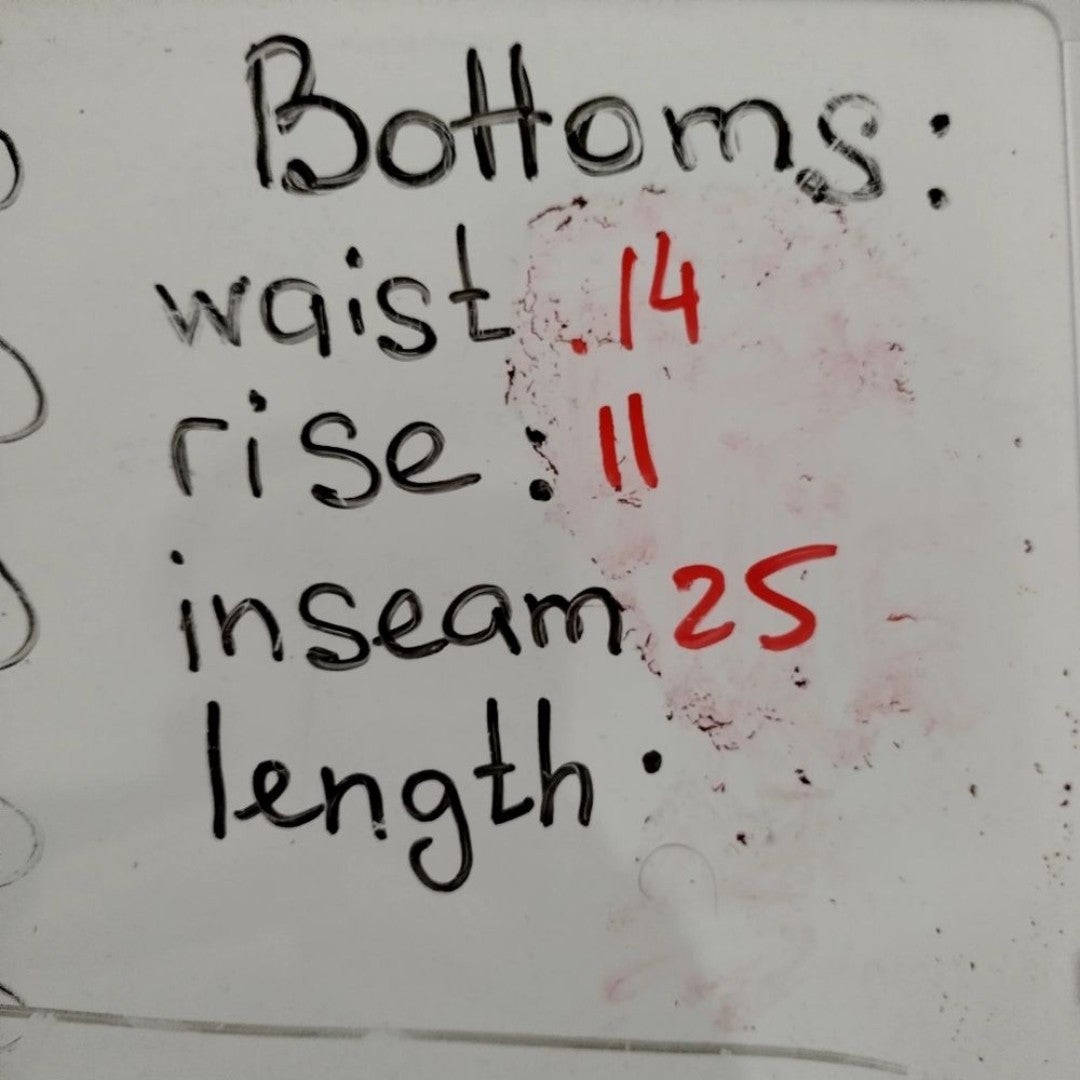 Bottoms:
waist . 14
rise : 11
inseam 25
length .